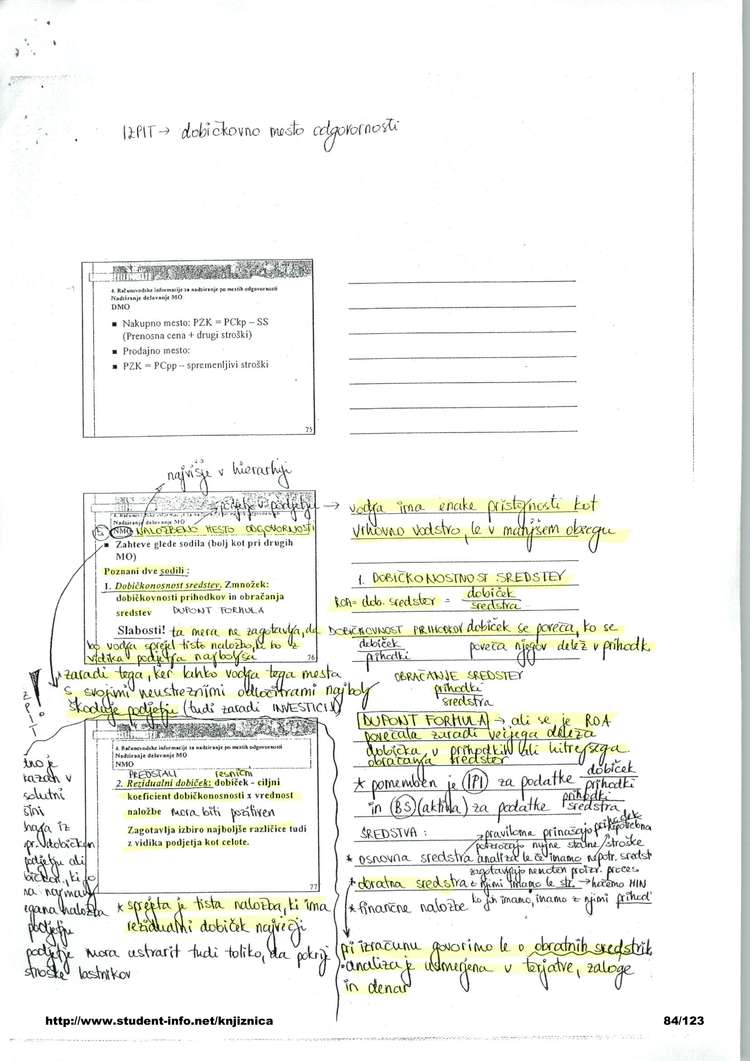 IZPIT → dobičkovno mesto odgovornosti
4. Računovodske informacije za nadziranje po mestih odgovornosti
Nadziranje delovanje MO
DMO
■ Nakupno mesto: PZK = PCkp – SS
(Prenosna cena + drugi stroški)
■ Prodajno mesto:
■ PZK = PCpp – spremenljivi stroški
75
najvišje v hierarhiji
podjetje v podjetju → vodja ima enake pristojnosti kot
vrhovno vodstvo, le v manjšem obsegu
Nadziranje delovanje MO
NMO NALOŽBENO MESTO ODGOVORNOSTI
■ Zahteve glede sodila (bolj kot pri drugih
MO)
Poznani dve sodili:
1. Dobičkonosnost sredstev. Zmnožek:
dobičkovnosti prihodkov in obračanja
sredstev DUPONT FORMULA
Slabosti! ta mera ne zagotavlja, da
bo vodja sprejel tisto naložbo, ki bo z
vidika podjetja najboljša
76
* zaradi tega, ker lahko vodja tega mesta
s svojimi neustreznimi odločitvami najbolj
škoduje podjetju (tudi zaradi INVESTICIJ)
1. DOBIČKONOSTNOST SREDSTEV
ROA = dob. sredstev = dobiček
sredstva
DOBIČKOVNOST PRIHODKOV dobiček se poveča, ko se
dobiček
prihodki
poveča njegov delež v prihodk.
OBRAČANJE SREDSTEV
prihodki
sredstva
DUPONT FORMULA → ali se je ROA
povečala zaradi večjega deleža
dobička v prihodkih ali hitrejšega
obračanja sredstev
* pomemben je IPI za podatke dobiček
prihodki
in BS (aktiva) za podatke prihodki
sredstva
SREDSTVA:
→ praviloma prinašajo prihodek
povzročajo nujne stalne stroške
* osnovna sredstva analiza le če imamo nepotr. sredst
zagotavljajo nemoten proizv. proces
* obratna sredstva z njimi imamo le str. → hočemo MIN
* finančne naložbe ko jih imamo, imamo z njimi prihod
pri izračunu govorimo le o obratnih sredstvih
• analiza je usmerjena v terjatve, zaloge
in denar
4. Računovodske informacije za nadziranje po mestih odgovornosti
Nadziranje delovanje MO
NMO
PREOSTALI resnični
2. Rezidualni dobiček: dobiček - ciljni
koeficient dobičkonosnosti x vrednost
naložbe mora biti pozitiven
Zagotavlja izbiro najboljše različice tudi
z vidika podjetja kot celote.
77
* sprejeta je tista naložba, ki ima
rezidualni dobiček največji
IZPIT!
podjetje mora ustvarit tudi toliko, da pokrije
stroške lastnikov
http://www.student-info.net/knjiznica
84/123